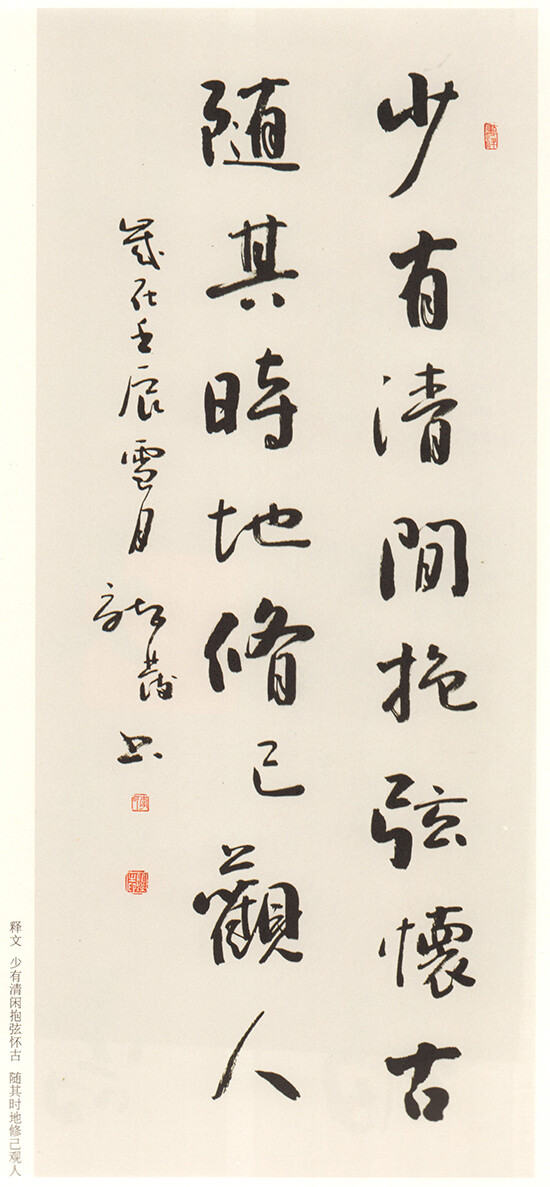 少有清間抱弦懷古
隨其時地脩己觀人
歲在壬辰雪月
书
释文 少有清闲抱弦怀古 随其时地修己观人